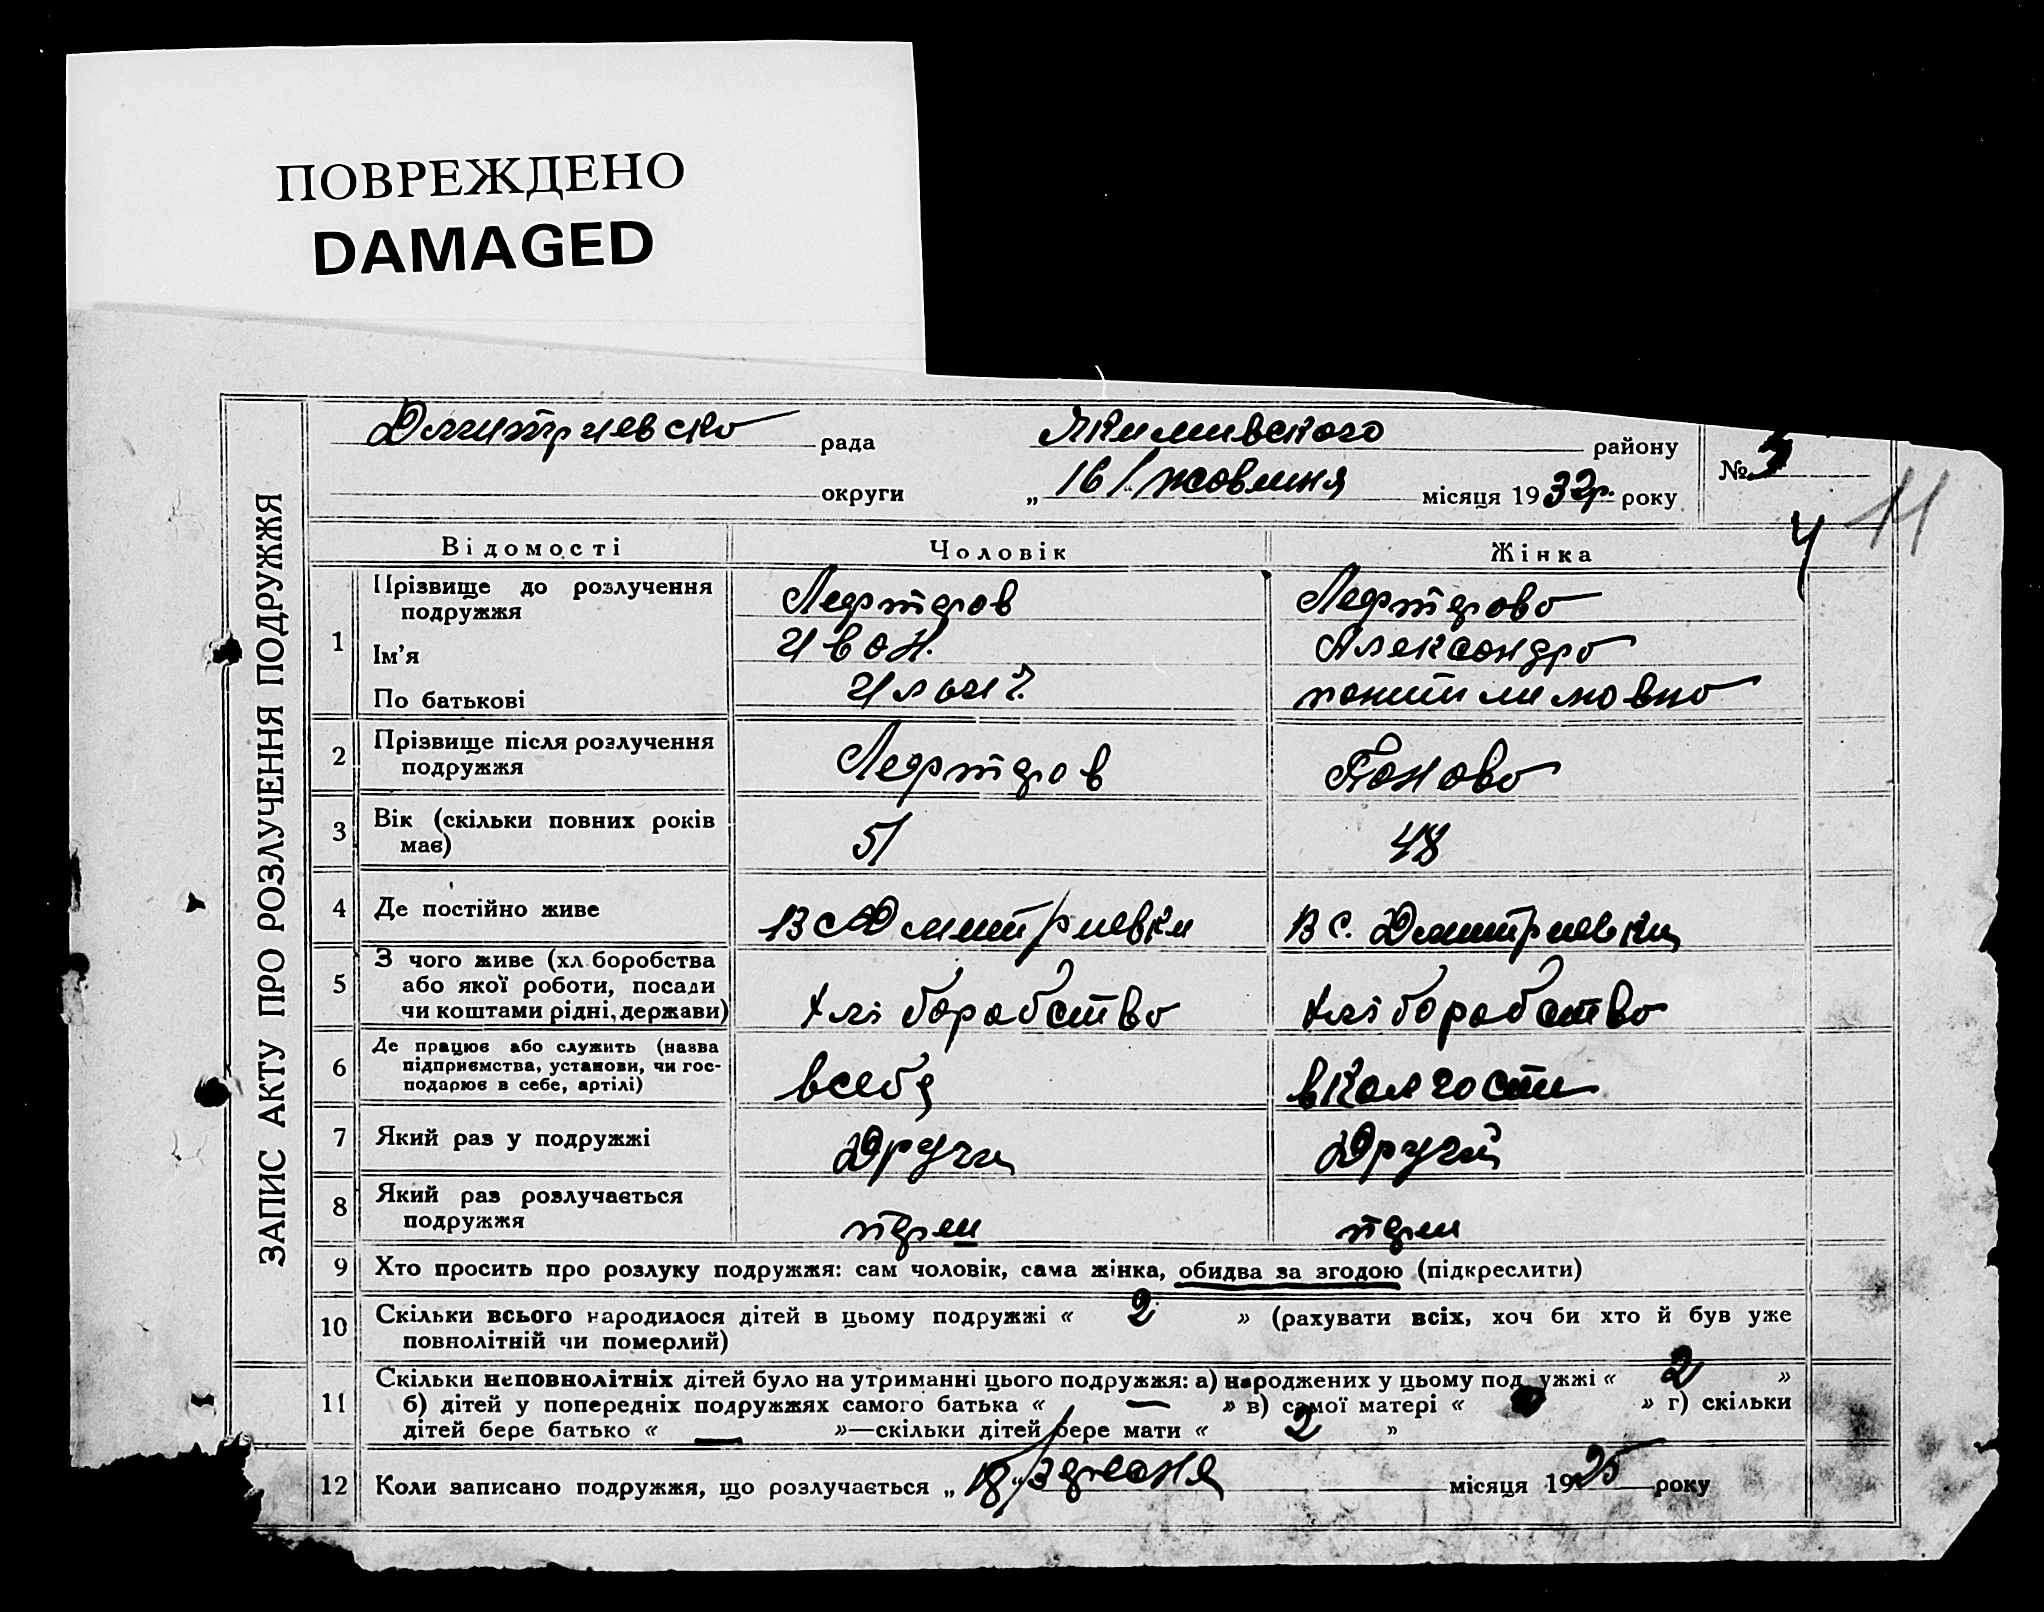 ПОВРЕЖДЕНО
DAMAGED
Дмитриевска рада Якимивского району
№ 3
округи „ 16 / жовтня місяця 1932р. року
11
Ч
ЗАПИС АКТУ ПРО РОЗЛУЧЕННЯ ПОДРУЖЖЯ
Відомості Чоловік Жінка
1 Прізвище до розлучення подружжя Лефтеров Лефтерова
Ім’я Иван Александра
По батькові Ильич
2 Прізвище після розлучення подружжя Лефтеров Панова
3 Вік (скільки повних років має) 51 48
4 Де постійно живе В с Дмитриевки В с. Дмитриевки
5 З чого живе (хліборобства
або якої роботи, посади
чи коштами рідні, держави) хліборабство хліборабство
6 Де працює або служить (назва
підприємства, установи, чи гос-
подарює в себе, артілі) в себе в Колгосте
7 Який раз у подружжі Други Другий
8 Який раз розлучається
подружжя перши перши
9 Хто просить про розлуку подружжя: сам чоловік, сама жінка, обидва за згодою (підкреслити)
10 Скільки всього народилося дітей в цьому подружжі « 2 » (рахувати всіх, хоч би хто й був уже
повнолітній чи померлий)
11 Скільки неповнолітніх дітей було на утриманні цього подружжя: а) народжених у цьому подружжі « 2 »
б) дітей у попередніх подружжях самого батька « — » в) самої матері « » г) скільки
дітей бере батько « — »—скільки дітей бере мати « 2 »
12 Коли записано подружжя, що розлучається „ 18 „ місяця 1925 року